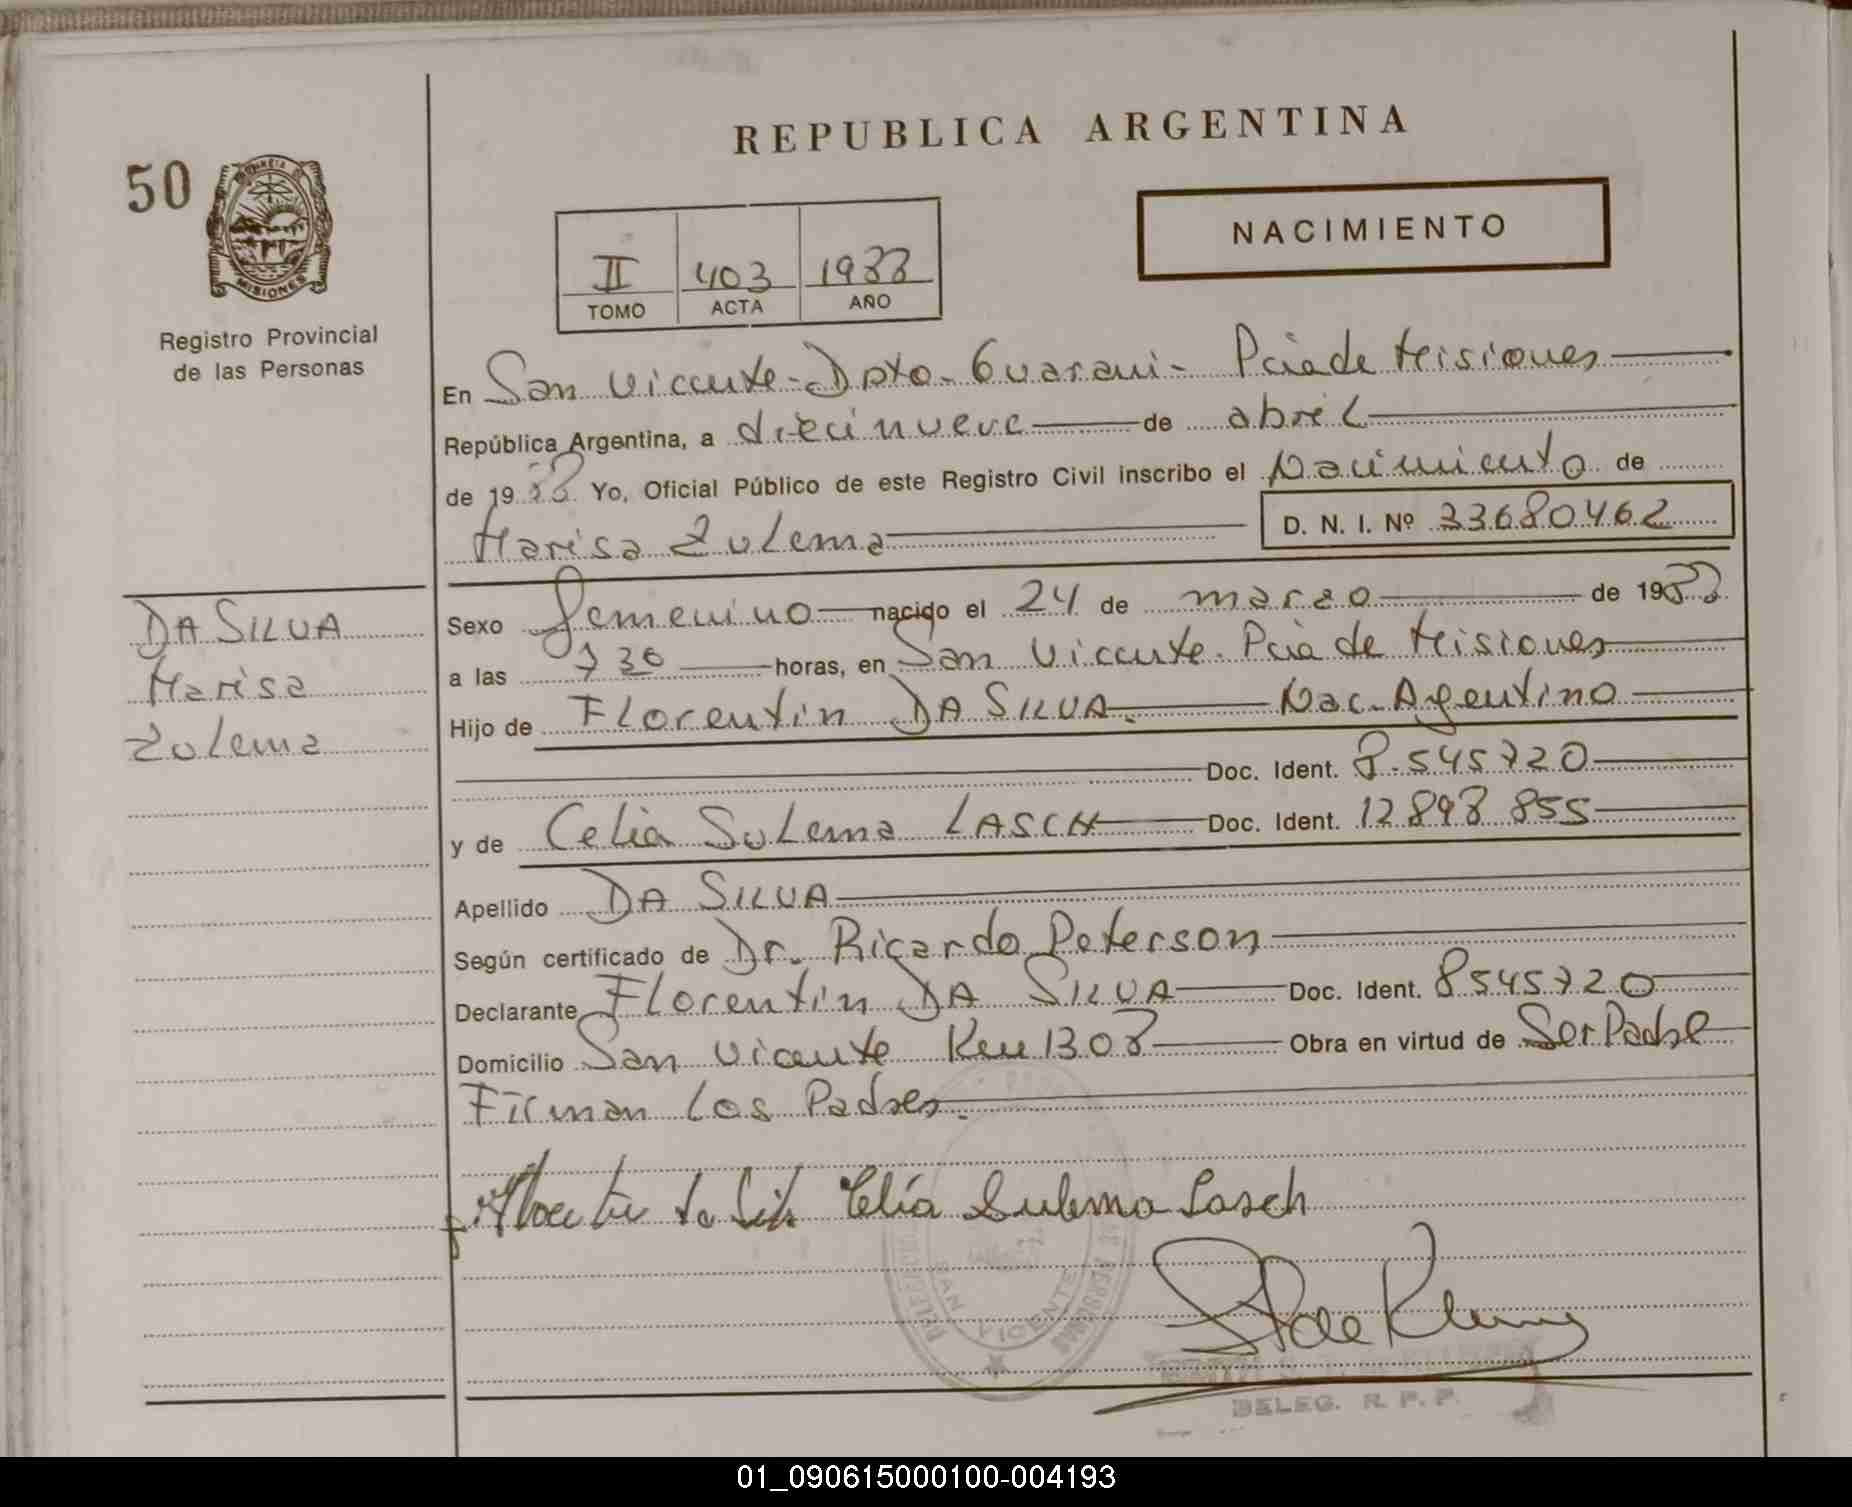 REPUBLICA ARGENTINA
50
PROVINCIA DE
MISIONES
Registro Provincial
de las Personas
NACIMIENTO
II 403 1988
TOMO ACTA AÑO
En San Vicente - Dpto - Guarani - Pcia de Misiones
República Argentina, a diecinueve de abril
de 1988 Yo, Oficial Público de este Registro Civil inscribo el Nacimiento de
Marisa Zulema D. N. I. Nº 33680462
DA SILVA
Marisa
Zulema
Sexo femenino nacido el 24 de marzo de 1988
a las 730 horas, en San Vicente. Pcia de Misiones
Hijo de Florentin DA SILVA. Nac. Agentino
Doc. Ident. 8.545720
y de Celia Sulema LASCH Doc. Ident. 12898855
Apellido DA SILVA
Según certificado de Dr. Ricardo Peterson
Declarante Florentin DA SILVA Doc. Ident. 8545720
Domicilio San Vicente Km 1308 Obra en virtud de Ser Padre
Firman Los Padres.
Celia Sulema Lasch
SAN VICENTE
DELEG. R. P. P.
01_090615000100-004193